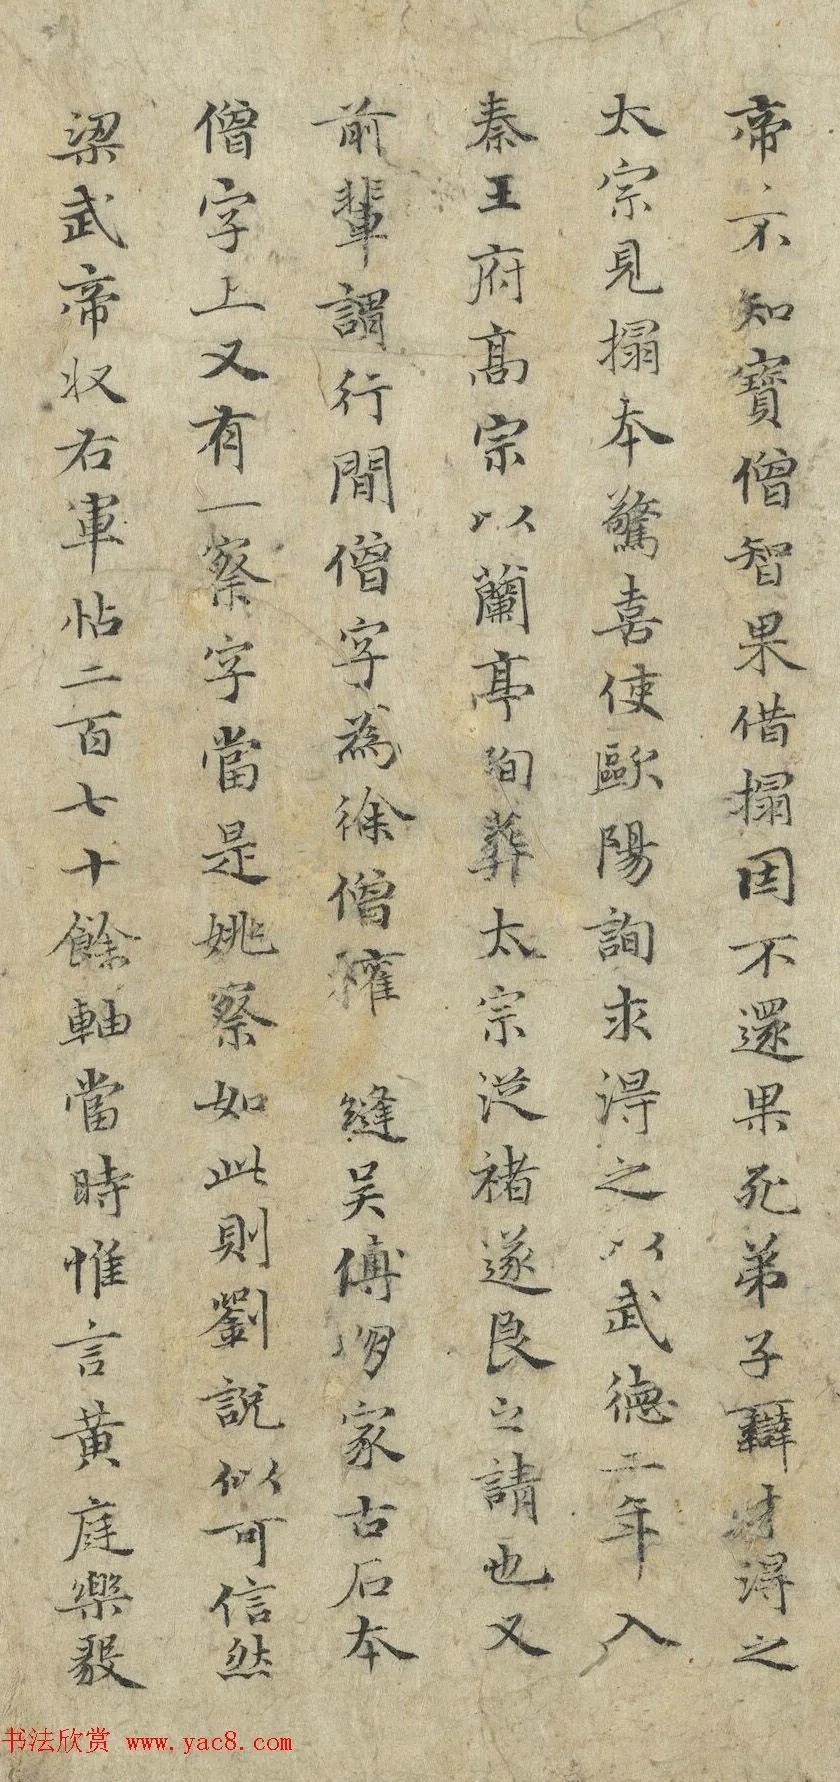 帝不知寶僧智果借搨因不還果死弟子辯才得之
太宗見搨本驚喜使歐陽詢求得之以武德二年入
秦王府高宗以蘭亭殉葬太宗從褚遂良之請也又
前輩謂行間僧字為徐僧權 縫吳傅朋家古石本
僧字上又有一察字當是姚察如此則劉說似可信然
梁武帝收右軍帖二百七十餘軸當時惟言黃庭樂毅
书法欣赏 www.yac8.com